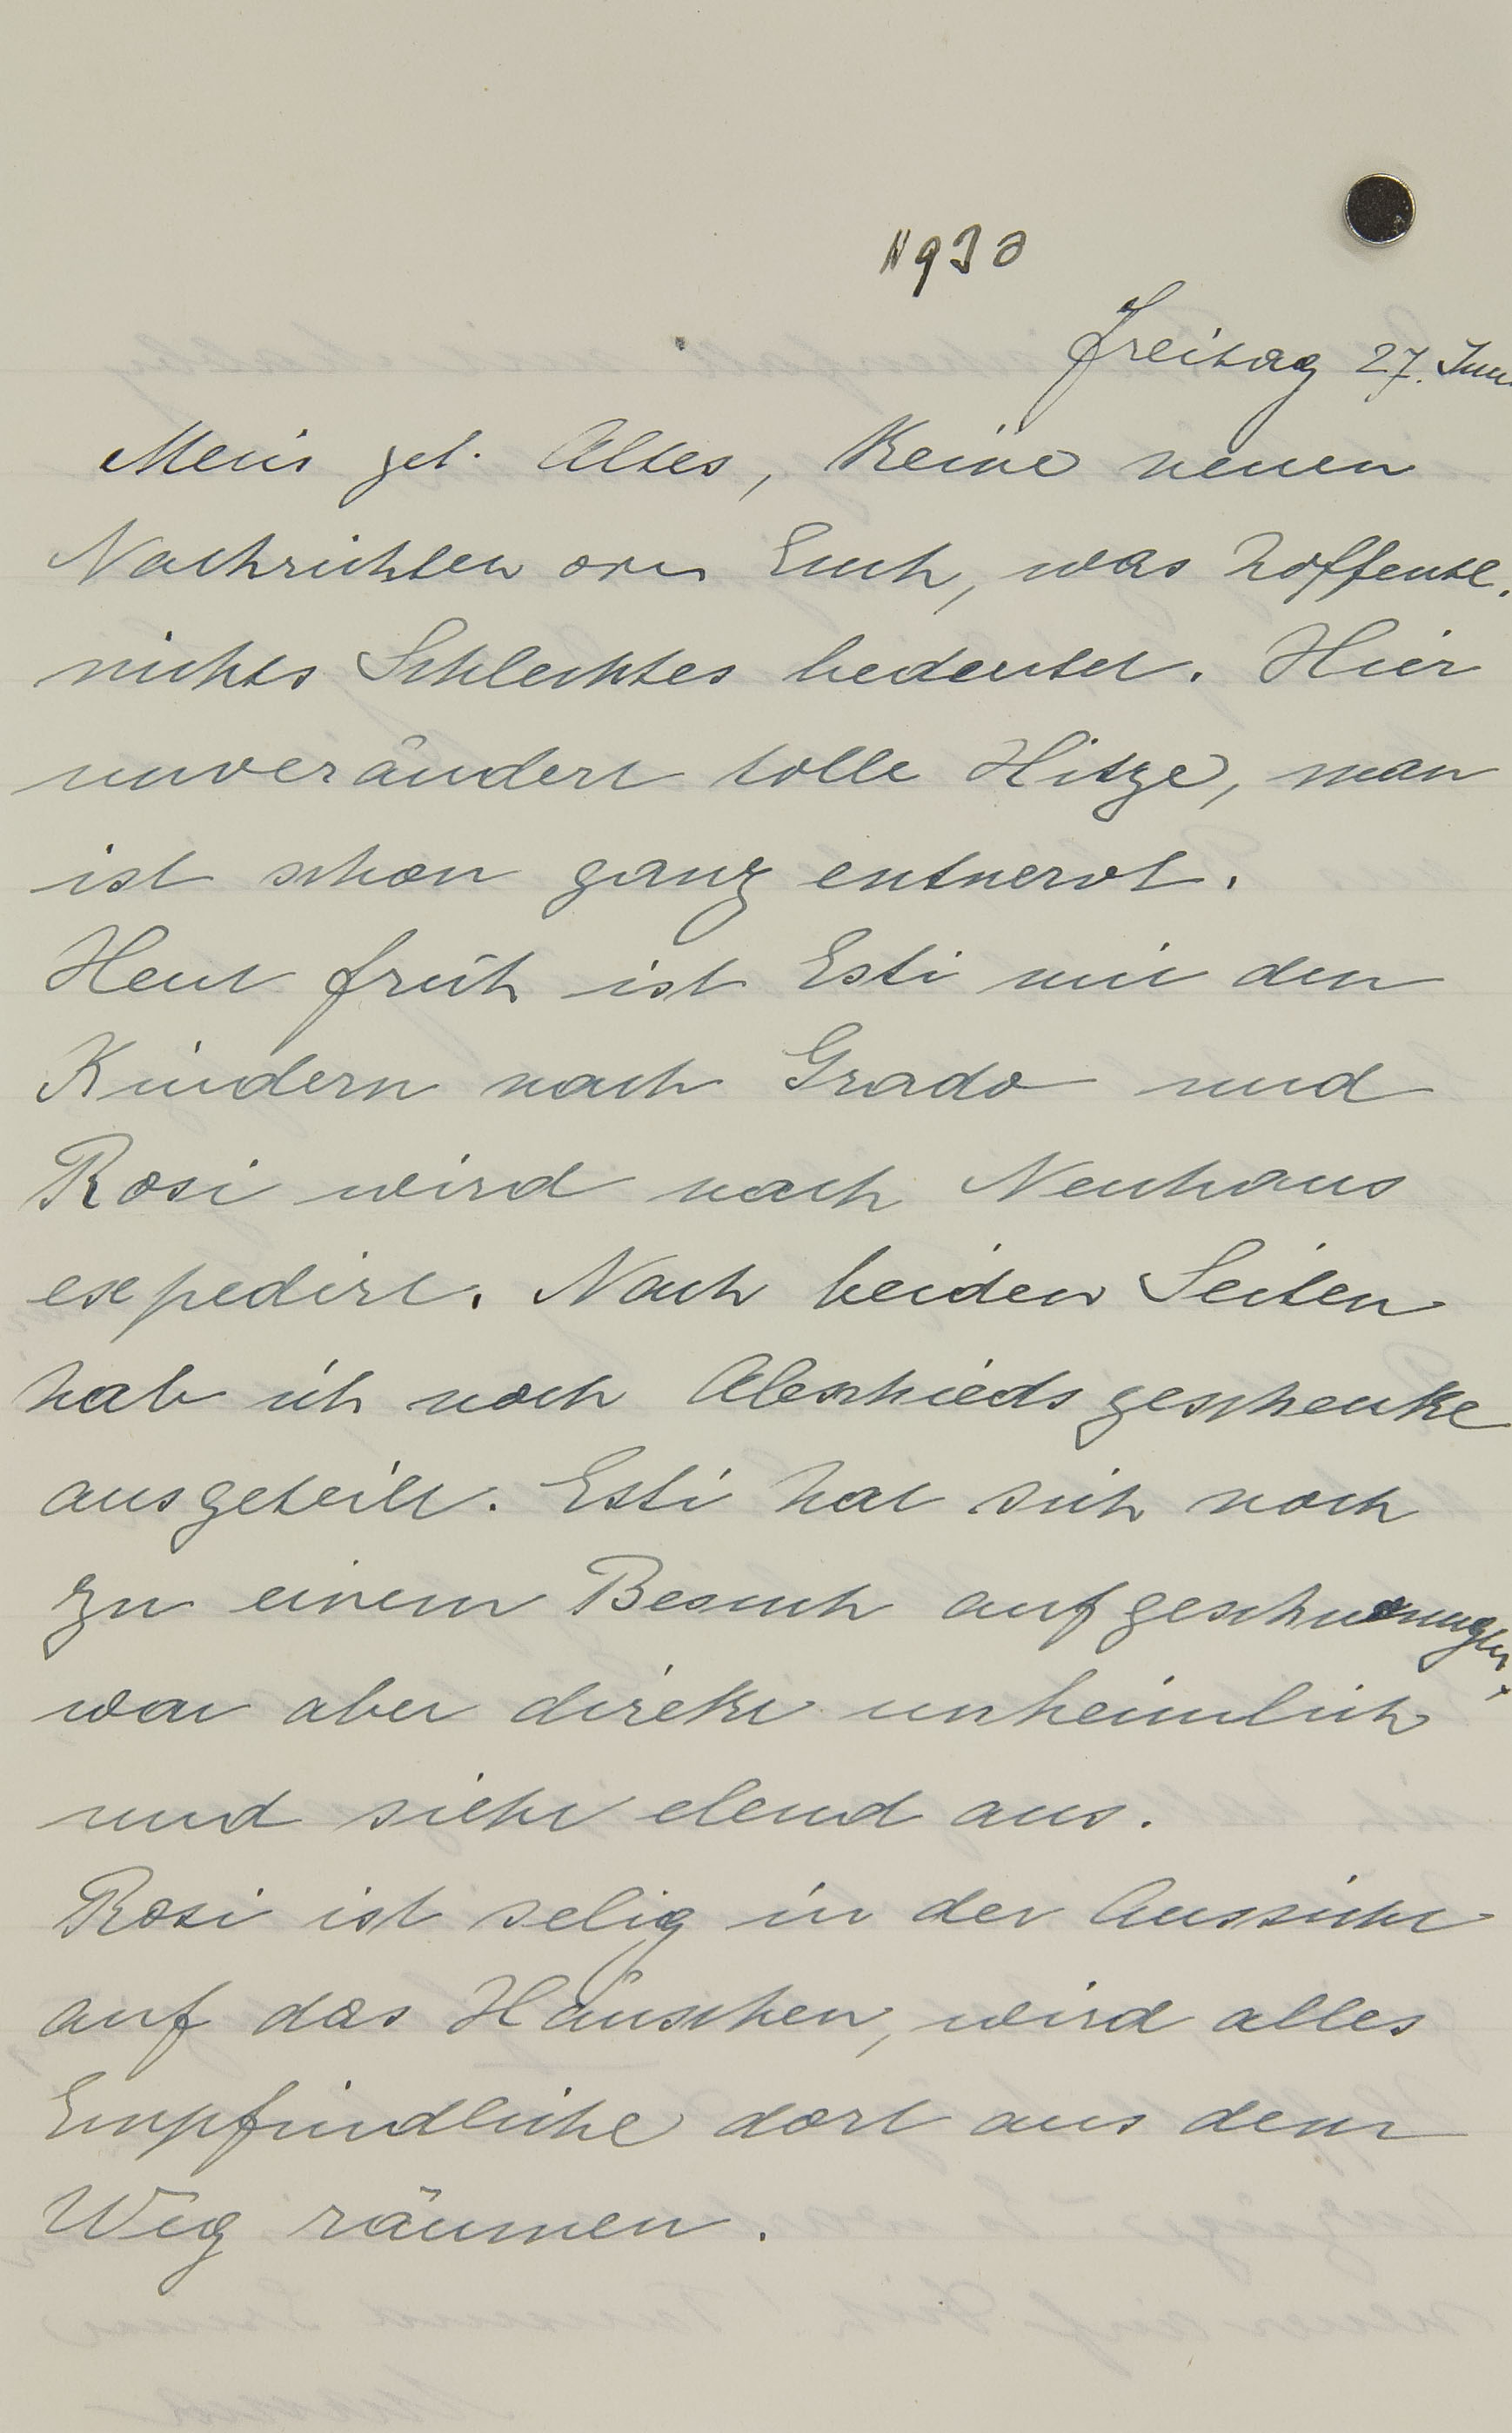 1930
Freitag 27. Juni
Mein gel. Altes, Keine neuen
Nachrichten von Euch, was hoffentl.
nichts Schlechtes bedeutet. Hier
unverändert tolle Hitze, man
ist schon ganz entnervt.
Heut früh ist Esti mit den
Kindern nach Grado und
Rosi wird nach Neuhaus
expedirt. Nach beiden Seiten
hab ich noch Abschiedsgeschenke
ausgeteilt. Esti hat sich noch
zu einem Besuch aufgeschwungen,
war aber direkt unheimlich
und sieht elend aus.
Rosi ist selig in der Aussicht
auf das Häuschen, wird alles
Empfindliche dort aus dem
Weg räumen.